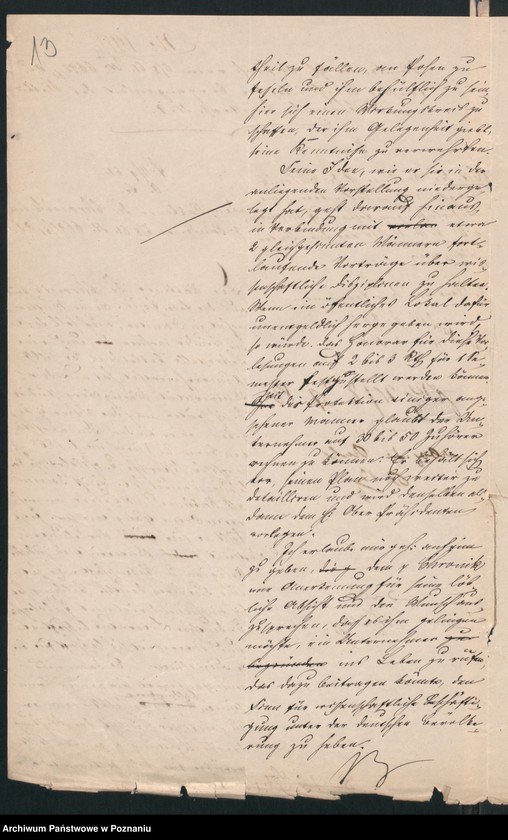 13
theil zu fällen, an Posen zu
fesseln und ihm behülflich zu sein,
hier sich einen Wirkungskreis zu
schaffen, der ihm Gelegenheit giebt,
seine Kenntnisse zu verwerthen.
Seine Idee, wie er sie in der
anliegenden Vorstellung niederge-
legt hat, geht darauf hinaus,
in Verbindung mit etwa
2 gleichgesinnten Männern fort-
laufende Vorträge über wis-
senschaftliche Disziplinen zu halten.
Wenn ein öffentliches Lokal dafür
unentgeldlich hergegeben wird,
so würde das Honorar für diese Vor-
lesungen auf 2 bis 3 Rth für 1 Se-
mester festgestellt werden können.
die Protektion einiger ange-
sehener Männer glaubt der Un-
ternehmer auf 30 bis 50 Zuhörer
rechnen zu können. Er behält sich
vor, seinen Plan noch weiter zu
detailliren und wird denselben als-
dann dem H. Ober Präsidenten
vorlegen.
Ich erlaube mir geh. anheim
zu geben, dem
eine Anerkennung für seine löb-
liche Absicht und den Wunsch aus-
zusprechen, daß es ihm gelingen
möchte, ein Unternehmen
ins Leben zu rufen,
das dazu beitragen könnte, den
Sinn für wissenschaftliche Beschäfti-
gung unter der deutschen Bevölke-
rung zu heben.
Archiwum Państwowe w Poznaniu